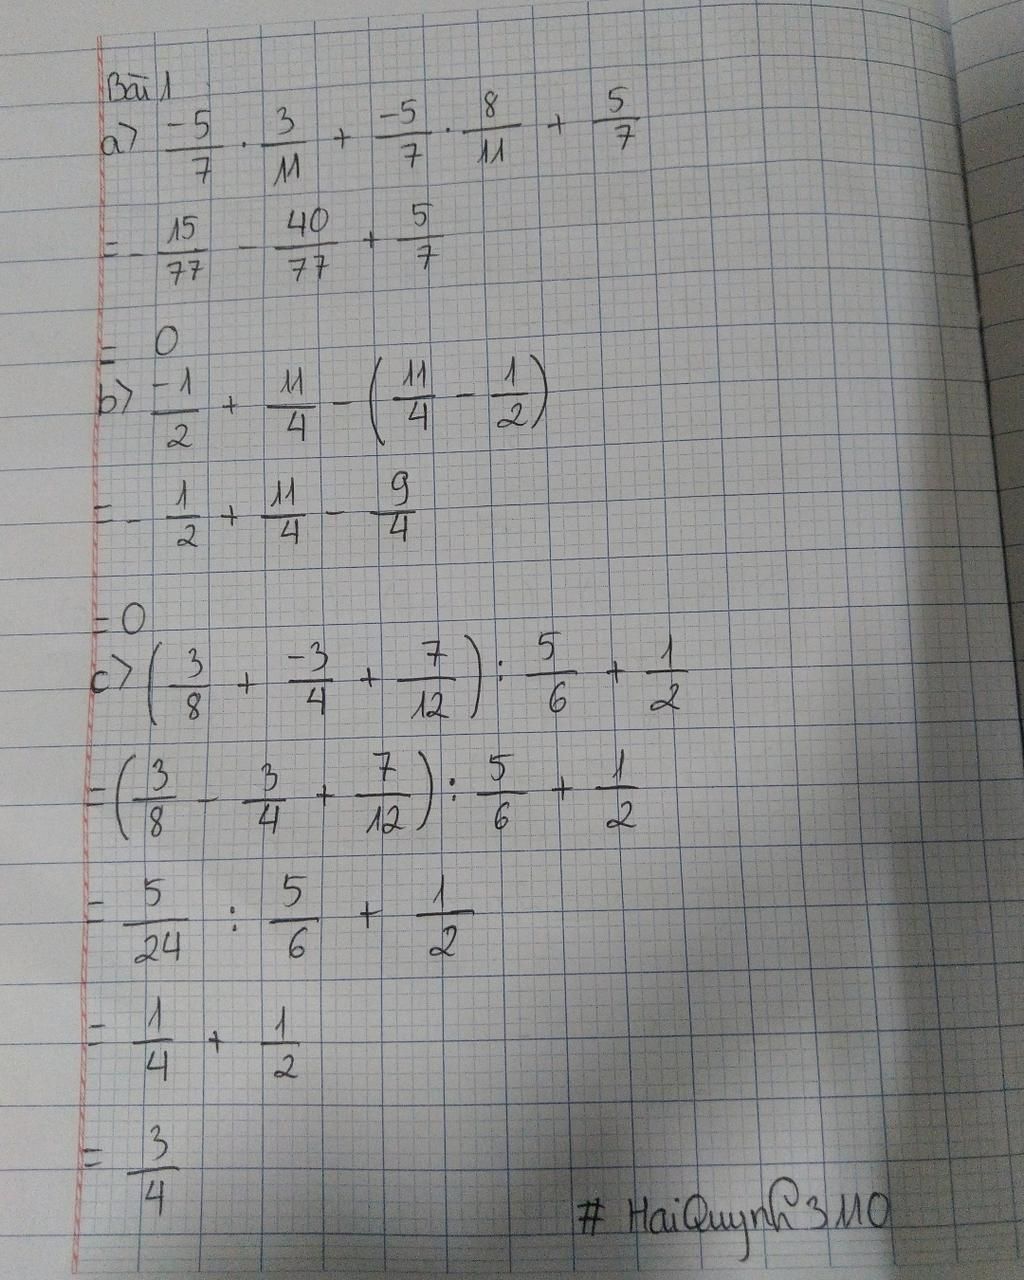 Bài 1
a> -5/7 . 3/11 + -5/7 . 8/11 + 5/7
= - 15/77 - 40/77 + 5/7
= 0
b> -1/2 + 11/4 - (11/4 - 1/2)
= - 1/2 + 11/4 - 9/4
= 0
c> (3/8 + -3/4 + 7/12) : 5/6 + 1/2
= (3/8 - 3/4 + 7/12) : 5/6 + 1/2
= 5/24 : 5/6 + 1/2
= 1/4 + 1/2
= 3/4
# HaiQuynh3110